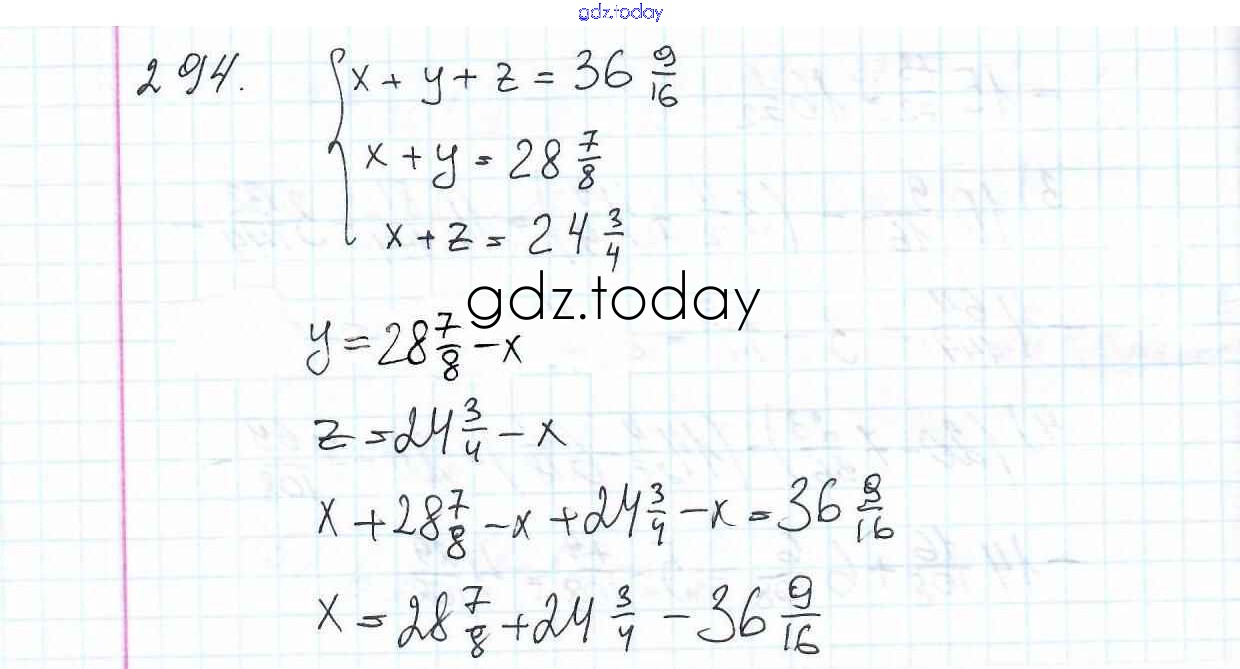 gdz.today
294. x + y + z = 36 9/16
x + y = 28 7/8
x + z = 24 3/4
gdz.today
y = 28 7/8 - x
z = 24 3/4 - x
x + 28 7/8 - x + 24 3/4 - x = 36 9/16
x = 28 7/8 + 24 3/4 - 36 9/16